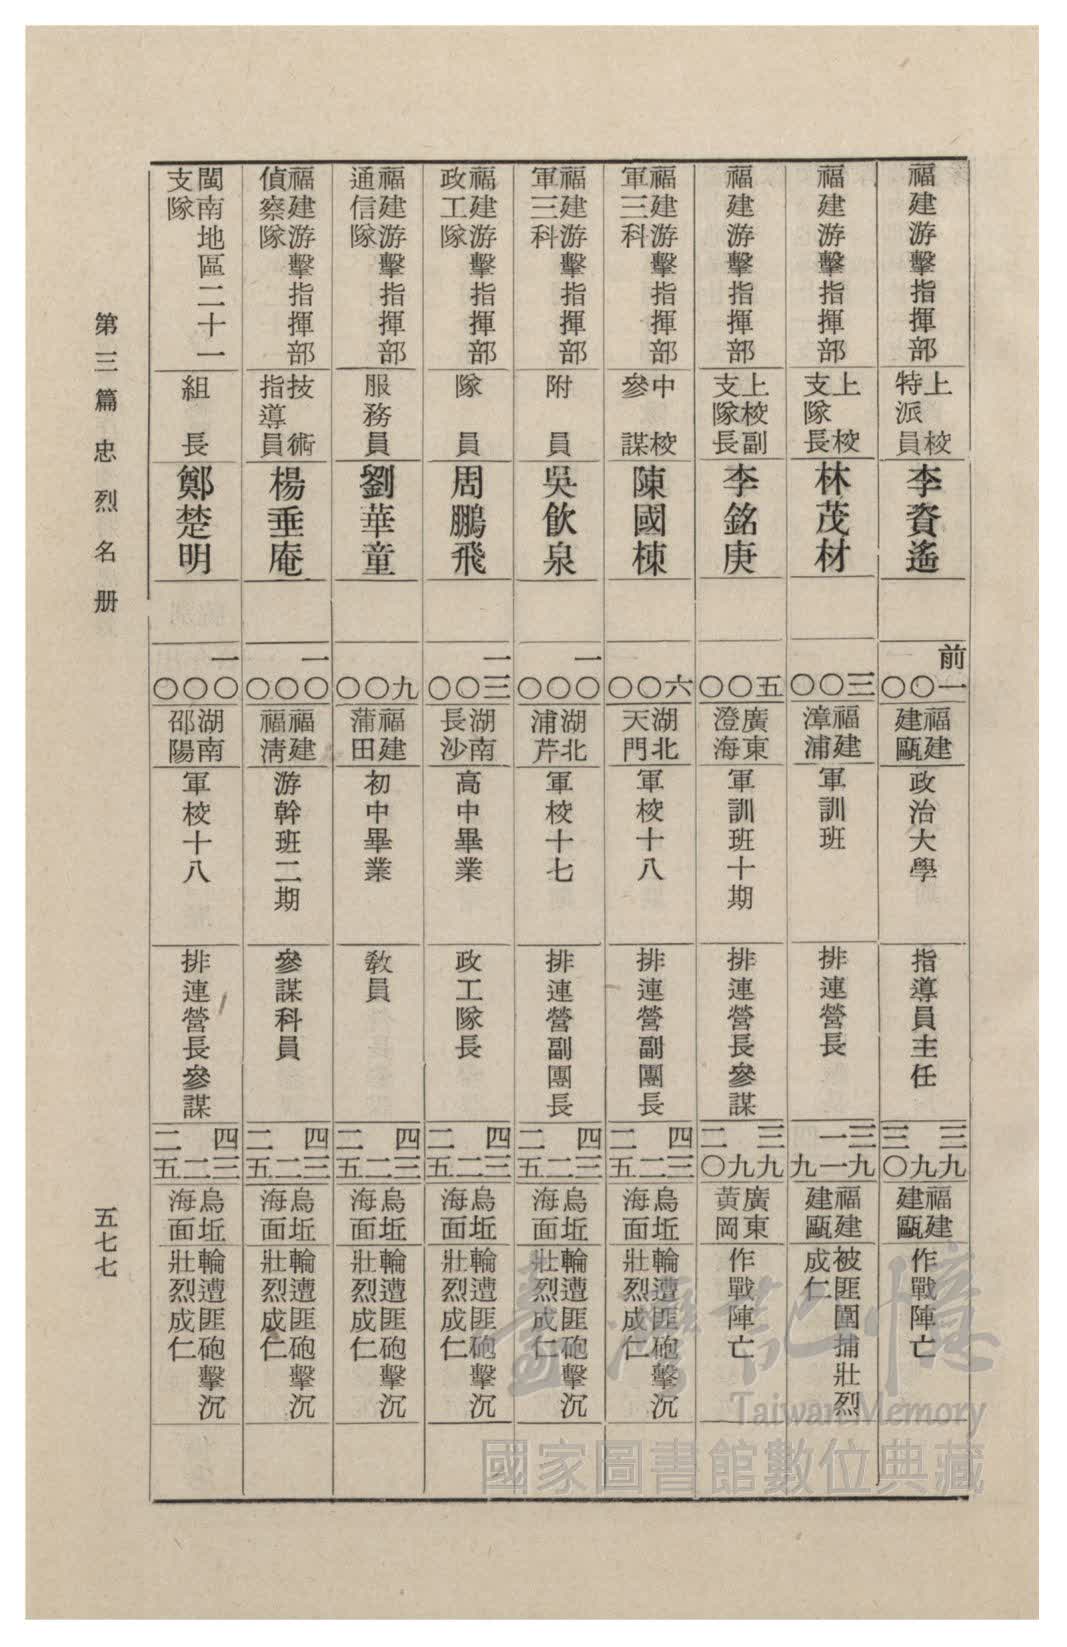 福建游擊指揮部 上校特派員 李資遙 前一〇〇〇 福建建甌 政治大學 指導員主任 三九 三九〇 福建建甌 作戰陣亡
福建游擊指揮部 上校支隊長 林茂材 三〇〇 福建漳浦 軍訓班 排連營長 三九 一一九 福建建甌 被匪圍捕壯烈成仁
福建游擊指揮部 上校副支隊長 李銘庚 五〇〇 廣東澄海 軍訓班十期 排連營長參謀 三九 九 二〇 廣東黃岡 作戰陣亡
福建游擊指揮部軍三科 中校參謀 陳國棟 六〇〇 湖北天門 軍校十八 排連營副團長 四三 二 二五 烏坵海面 輪遭匪砲擊沉壯烈成仁
福建游擊指揮部軍三科 附員 吳飲泉 一〇〇〇 湖北浦芹 軍校十七 排連營副團長 四三 二 二五 烏坵海面 輪遭匪砲擊沉壯烈成仁
福建游擊指揮部政工隊 隊員 周鵬飛 一三〇〇 湖南長沙 高中畢業 政工隊長 四三 二 二五 烏坵海面 輪遭匪砲擊沉壯烈成仁
福建游擊指揮部通信隊 服務員 劉華童 九〇〇 福建蒲田 初中畢業 教員 四三 二 二五 烏坵海面 輪遭匪砲擊沉壯烈成仁
福建游擊指揮部偵察隊 技術指導員 楊垂庵 一〇〇〇 福建福淸 游幹班二期 參謀科員 四三 二 二五 烏坵海面 輪遭匪砲擊沉壯烈成仁
閩南地區二十一支隊 組長 鄭楚明 一〇〇〇 湖南邵陽 軍校十八 排連營長參謀 四三 二 二五 烏坵海面 輪遭匪砲擊沉壯烈成仁
第三篇忠烈名册
五七七
臺灣記憶
Taiwan Memory
國家圖書館數位典藏